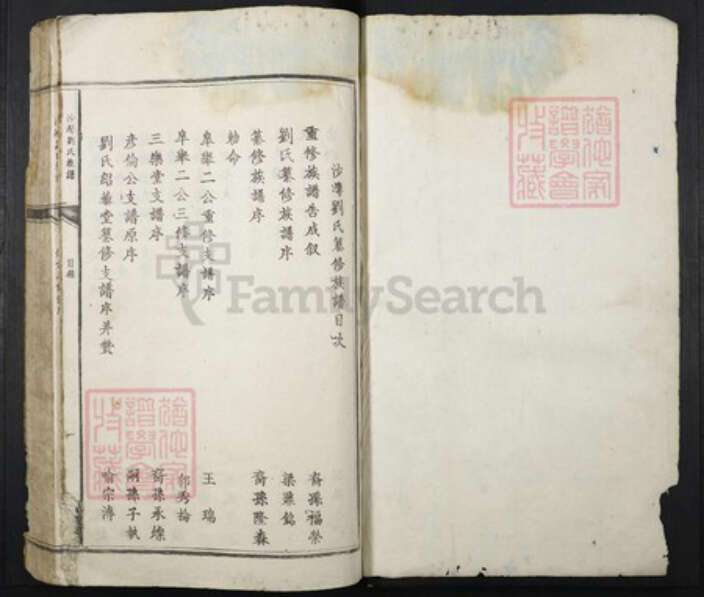 沙灣劉氏纂修族譜目次
重修族譜告成叙 裔孫福榮
劉氏纂修族譜序 梁業銘
纂修族譜序 裔孫隆森
勅命
皐舉二公重修支譜序 王瑞
皐舉二公三修支譜序 郭秀掄
三樂堂支譜序 裔孫承燦
彥倫公支譜原序 嗣孫子執
劉氏紹藜堂纂修支譜序并贊 喻宗溥
劉氏族譜
目錄
譜學會
收藏
譜學會
收藏
FamilySearch